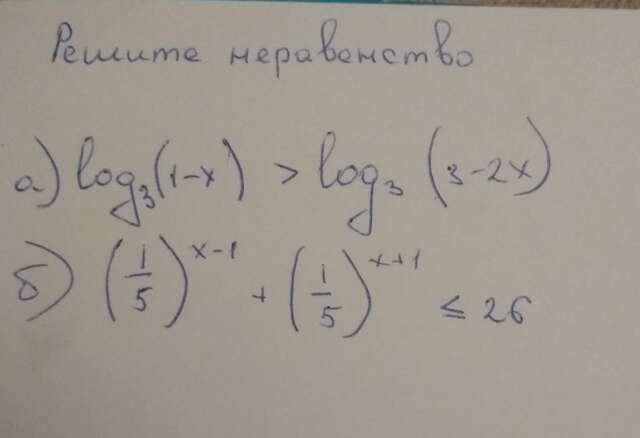 Решите неравенство
а) log₃(1-x) > log₃ (3-2x)
б) (1/5)^(x-1) + (1/5)^(x+1) ≤ 26